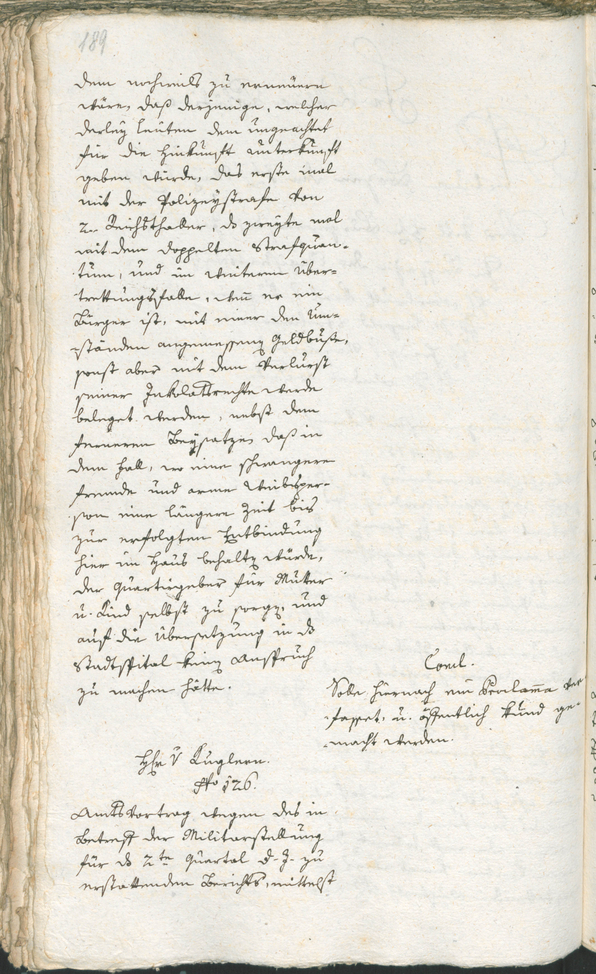 189
dem nochmals zu erneuern
wäre, daß derjenige, welcher
derley Leuten dem ungeachtet
für die Hinkunft unterkunft
geben würde, das erste mal
mit der Polizeystrafe von
2. Reichsthaler, ds zweyte mal
mit dem doppelten Strafquan-
tum, und im weiteren Über-
trettungsfalle, wenn er ein
Bürger ist, mit einer den Um-
ständen angemessenen Geldbuße,
sonst aber mit dem Verlurst
seiner Inkolatsrechte werde
beleget werden, nebst dem
ferneren Beysatze, daß in
dem Fall, wo eine schwangere
fremde und arme Weibsper-
son eine längere Zeit bis
zur erfolgten Entbindung
hier im Haus behalten würde,
der Quartiergeber für Mutter
u. Kind selbst zu sorgen, und
auf die Übersetzung in ds
Stadtspital keinen Anspruch
zu machen hätte.
Concl.
Solle hiernach ein Proclama ver
fasset, u. öffentlich kund ge-
macht werden.
Hhr. v Kuglern.
No 126.
Amtsvortrag wegen des in
Betreff der Militarstellung
für ds 2te Quartal d. J. zu
erstattenden Berichts, mittelst